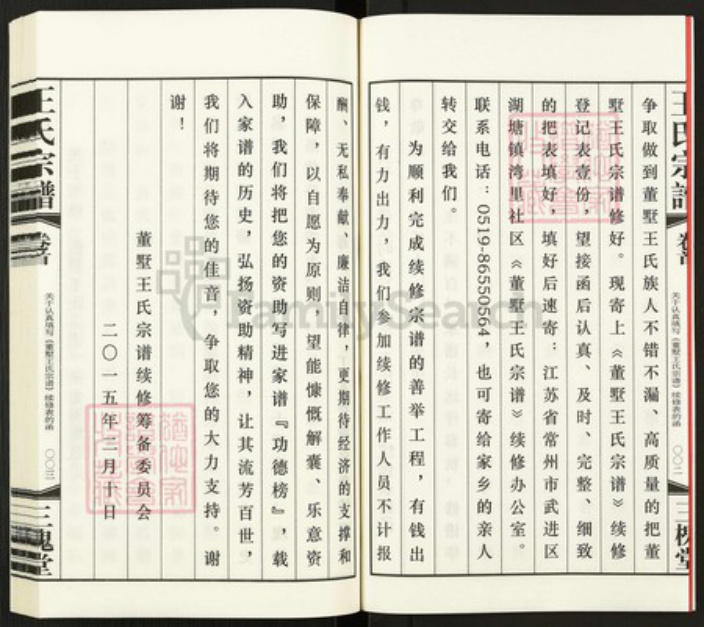 王氏宗譜
卷首
关于认真填写《董墅王氏宗谱》续修表的函
〇〇二
三槐堂
争取做到董墅王氏族人不错不漏、高质量的把董
墅王氏宗谱修好。现寄上《董墅王氏宗谱》续修
登记表壹份，望接函后认真、及时、完整、细致
的把表填好，填好后速寄：江苏省常州市武进区
湖塘镇湾里社区《董墅王氏宗谱》续修办公室。
联系电话：0519-86550564，也可寄给家乡的亲人
转交给我们。
为顺利完成续修宗谱的善举工程，有钱出
钱，有力出力，我们参加续修工作人员不计报
酬、无私奉献、廉洁自律，更期待经济的支撑和
保障，以自愿为原则，望能慷慨解囊、乐意资
助，我们将把您的资助写进家谱『功德榜』，载
入家谱的历史，弘扬资助精神，让其流芳百世，
我们将期待您的佳音，争取您的大力支持。谢
谢！
董墅王氏宗谱续修筹备委员会
二〇一五年三月十日
王氏宗譜
卷首
关于认真填写《董墅王氏宗谱》续修表的函
〇〇三
三槐堂
FamilySearch